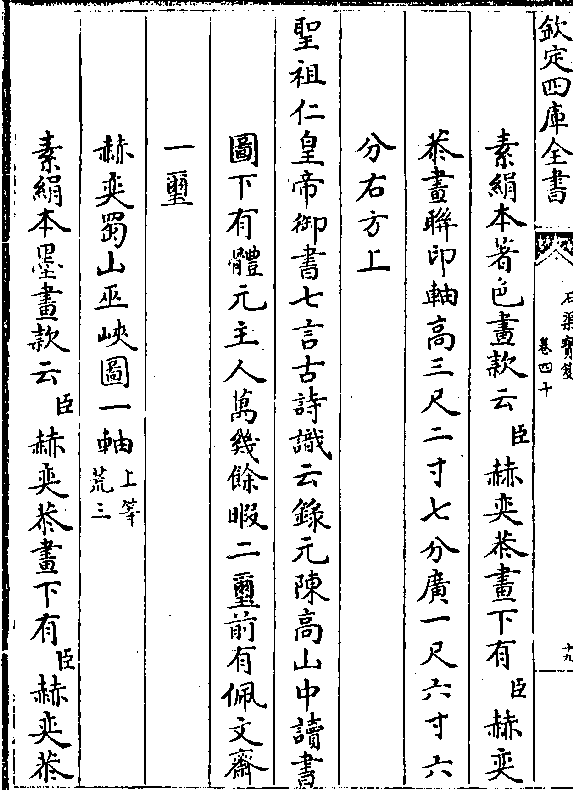 欽定四庫全書
石渠寳笈
卷四十
十九
素絹本著色畫款云臣赫奕恭畫下有臣赫奕
恭畫聨印軸高三尺二寸七分廣一尺六寸六
分右方上
聖祖仁皇帝御書七言古詩識云錄元陳高山中讀書
圖下有體元主人萬幾餘暇二璽前有佩文齋
一璽
赫奕蜀山巫峽圖一軸上等荒三
素絹本墨畫款云臣赫奕恭畫下有臣赫奕恭